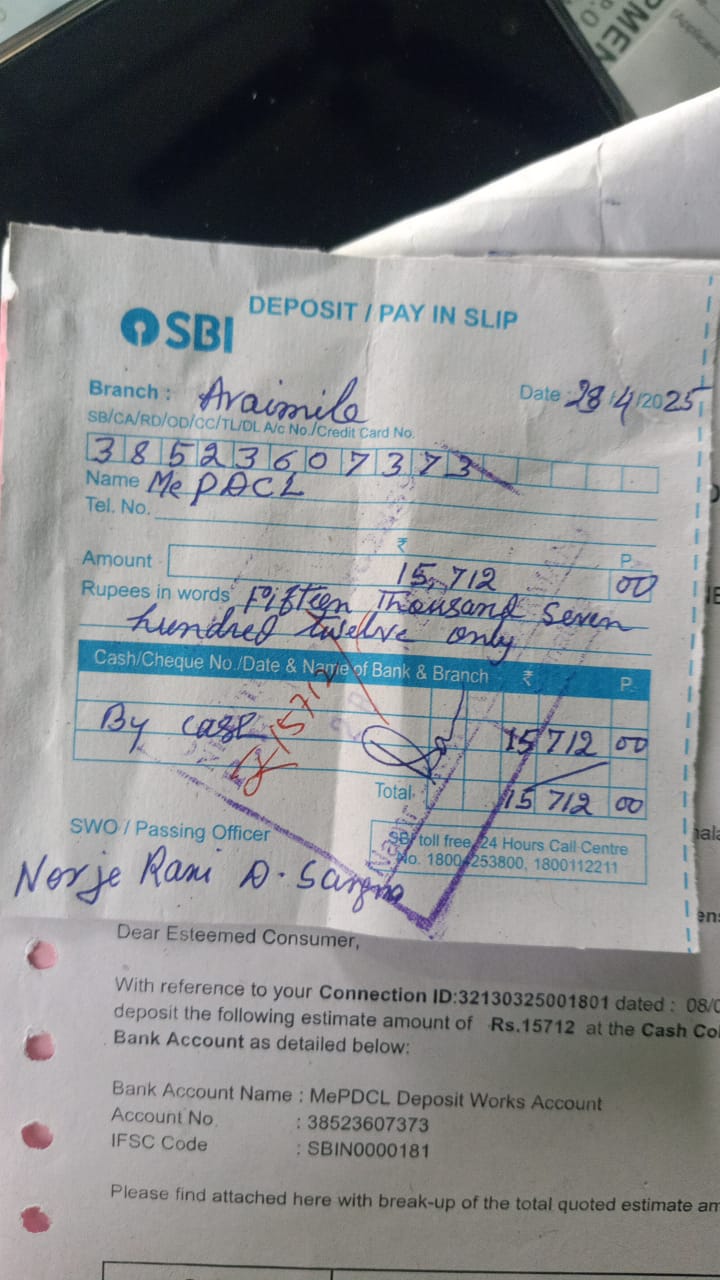 PMEN
P.O
(Applican
DEPOSIT / PAY IN SLIP
SBI
Branch : Araimile
Date : 28/4/2025
SB/CA/RD/OD/CC/TL/DL A/c No./Credit Card No.
38523607373
Name MePDCL
Tel. No.
₹ P.
Amount 15,712 00
Rupees in words Fifteen Thousand Seven
hundred twelve only
Cash/Cheque No./Date & Name of Bank & Branch ₹ P.
By case 15712 00
15712
Total 15712 00
SWO / Passing Officer
SBI toll free 24 Hours Call Centre
No. 1800 253800, 1800112211
Norje Rani D. Sangma
Dear Esteemed Consumer,
With reference to your Connection ID:32130325001801 dated : 08/0
deposit the following estimate amount of Rs.15712 at the Cash Co
Bank Account as detailed below:
Bank Account Name : MePDCL Deposit Works Account
Account No. : 38523607373
IFSC Code : SBIN0000181
Please find attached here with break-up of the total quoted estimate am